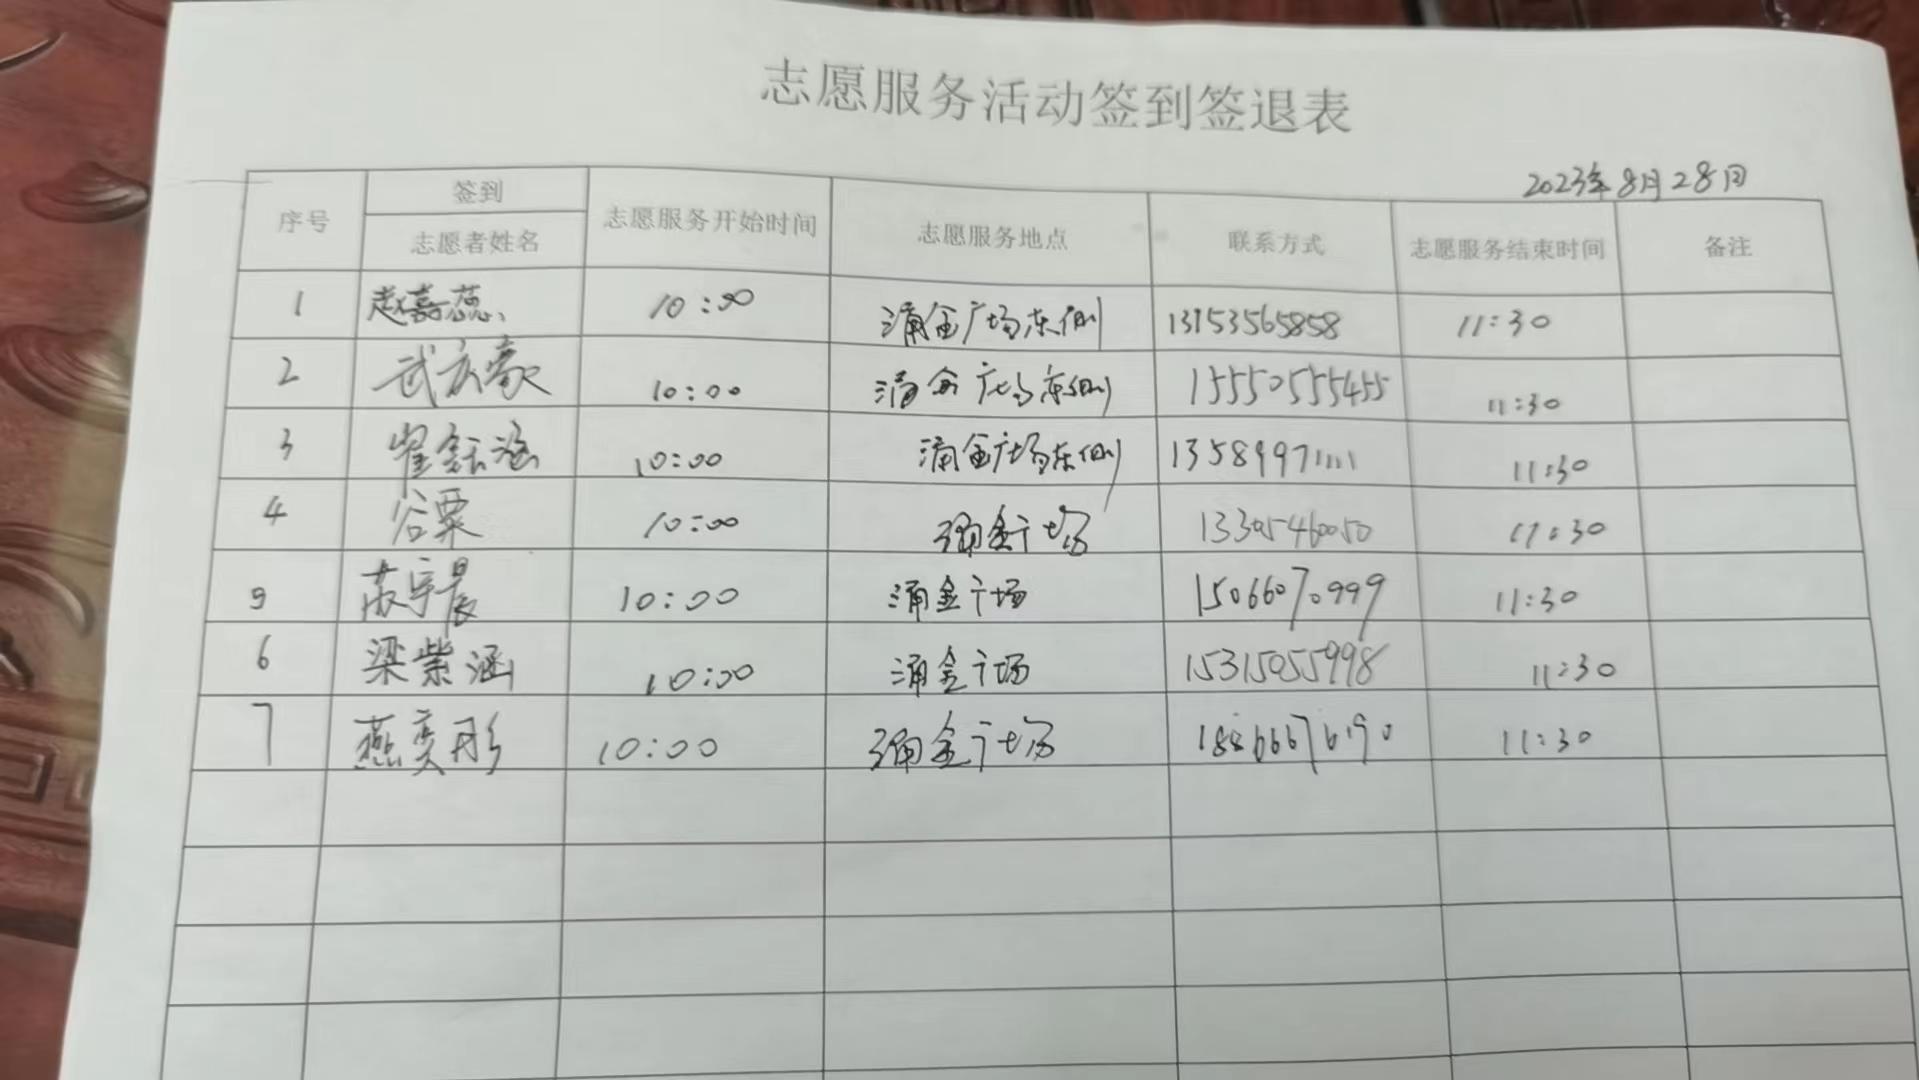 志愿服务活动签到签退表
2023年8月28日
序号 签到 志愿服务开始时间 志愿服务地点 联系方式 志愿服务结束时间 备注
志愿者姓名
1 赵嘉蕊 10:00 涌金广场东侧 13153565858 11:30
2 武庆豪 10:00 涌金广场东侧 15550555455 11:30
3 翟钰涵 10:00 涌金广场东侧 13589971111 11:30
4 谷粟 10:00 涌金广场 13305460050 11:30
5 苏宇晨 10:00 涌金广场 15066070999 11:30
6 梁紫涵 10:00 涌金广场 15315055998 11:30
7 燕奕彤 10:00 涌金广场 11:30